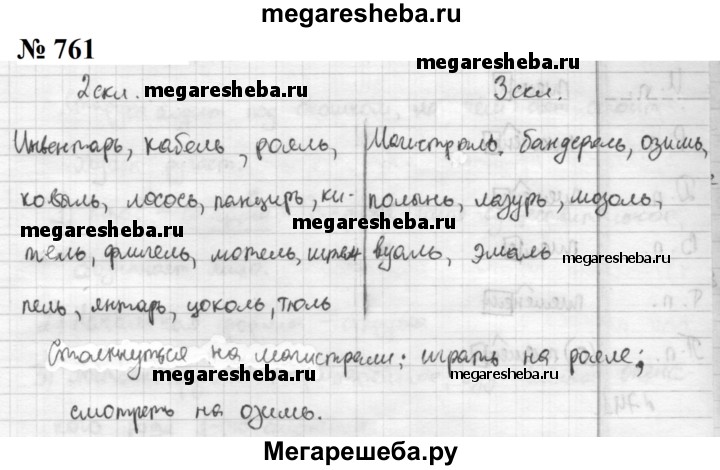 megaresheba.ru
№ 761
2скл. megaresheba.ru
megaresheba.ru
3скл.
Инвентарь, кабель, рояль,
Магистраль, бандероль, озимь,
коваль, лосось, панцирь, ки-
полынь, лазурь, мозоль,
megaresheba.ru
megaresheba.ru
тель, флигель, мотель, штем
вуаль, эмаль
megaresheba.ru
пель, янтарь, цоколь, тюль
Столкнуться на магистрали; играть на рояле;
megaresheba.ru
megaresheba.ru
смотреть на озимь.
Мегарешеба.ру